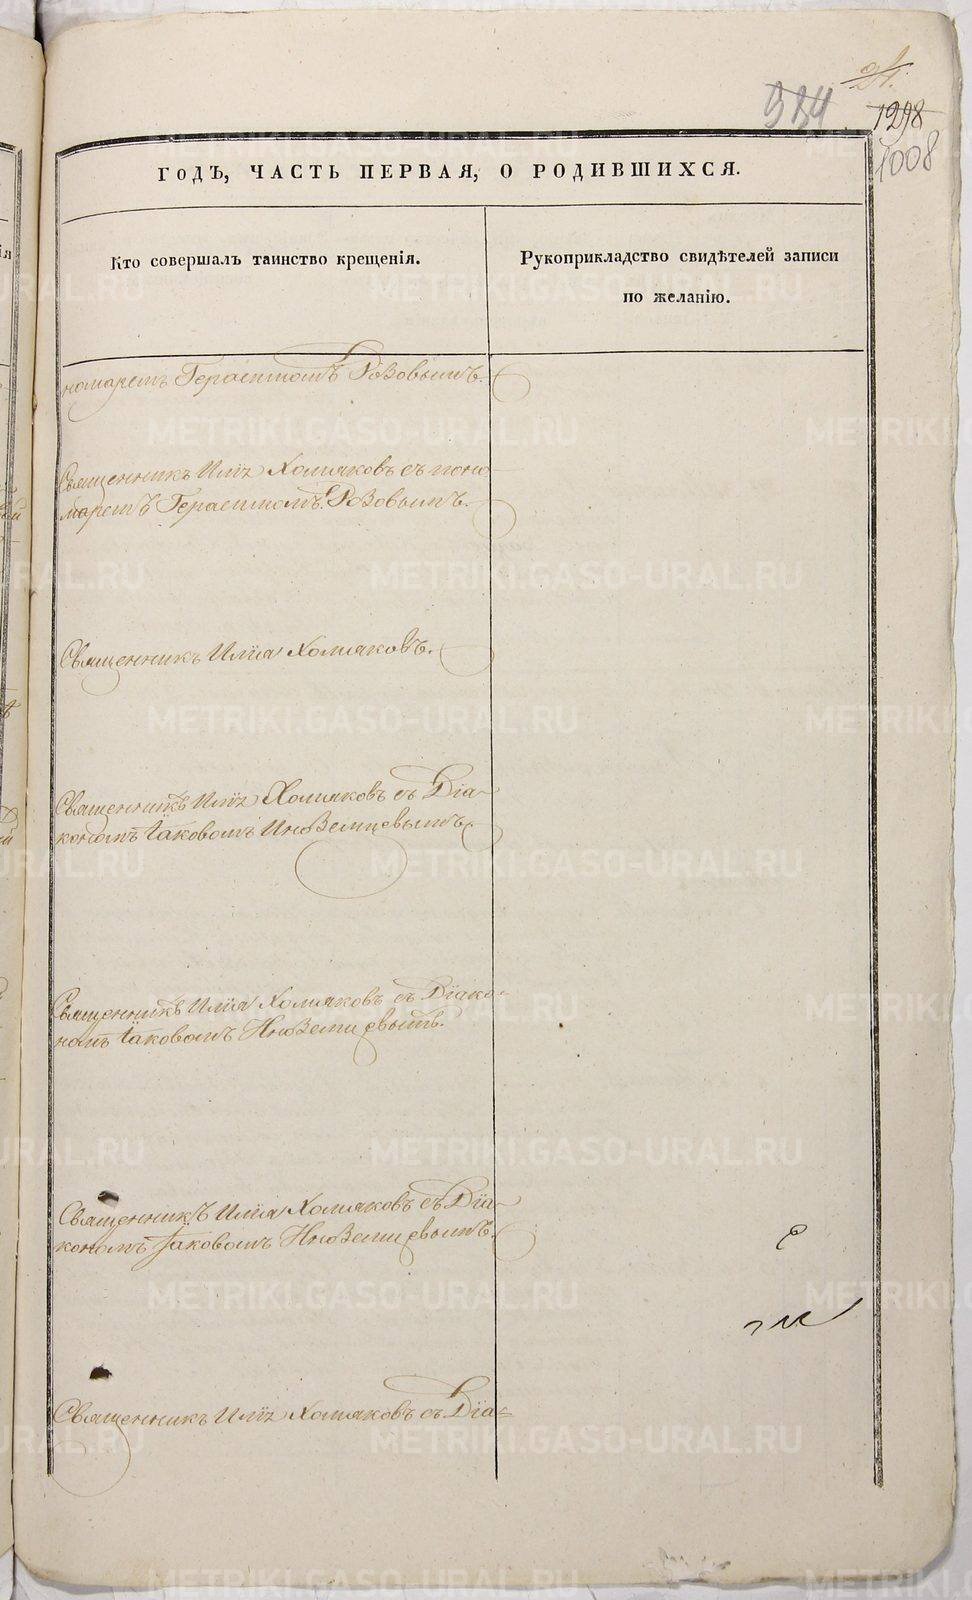 984
1298
1008
ГОДЪ, ЧАСТЬ ПЕРВАЯ, О РОДИВШИХСЯ.
Кто совершалъ таинство крещенія.
Рукоприкладство свидѣтелей записи
по желанію.
номаремъ Герасимомъ Розовымъ.
Священникъ Илія Холмяковъ съ поно
маремъ Герасимомъ Розовымъ.
Священникъ Илія Холмяковъ.
Священникъ Илія Холмяковъ съ Діа-
кономъ Іаковомъ Иноземцевымъ
Священникъ Илія Холмяковъ съ Діако-
номъ Іаковомъ Иноземцевымъ.
Священникъ Илія Холмяковъ съ Діа-
кономъ Іаковомъ Иноземцевымъ.
Священникъ Илія Холмяковъ съ Діа=
METRIKI.GASO-URAL.RU